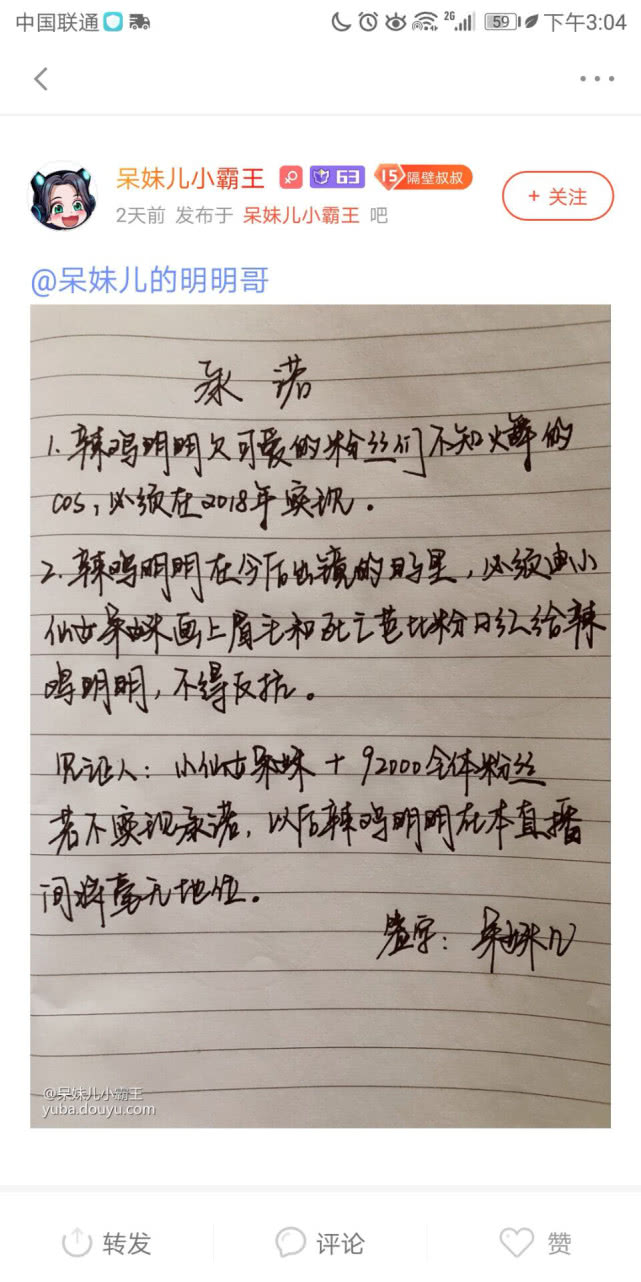 中国联通 2G 59 下午3:04
呆妹儿小霸王 63 15 隔壁叔叔
+ 关注
2天前 发布于 呆妹儿小霸王 吧
@呆妹儿的明明哥
承诺
1. 辣鸡明明欠可爱的粉丝们不知火舞的
cos，必须在2018年实现。
2. 辣鸡明明在今后出镜的日子里，必须由小
仙女呆妹画上眉毛和死亡芭比粉口红给辣
鸡明明，不得反抗。
见证人：小仙女呆妹 + 92000全体粉丝
若不实现承诺，以后辣鸡明明在本直播
间将毫无地位。
签字：呆妹儿
@呆妹儿小霸王
yuba.douyu.com
转发 评论 赞